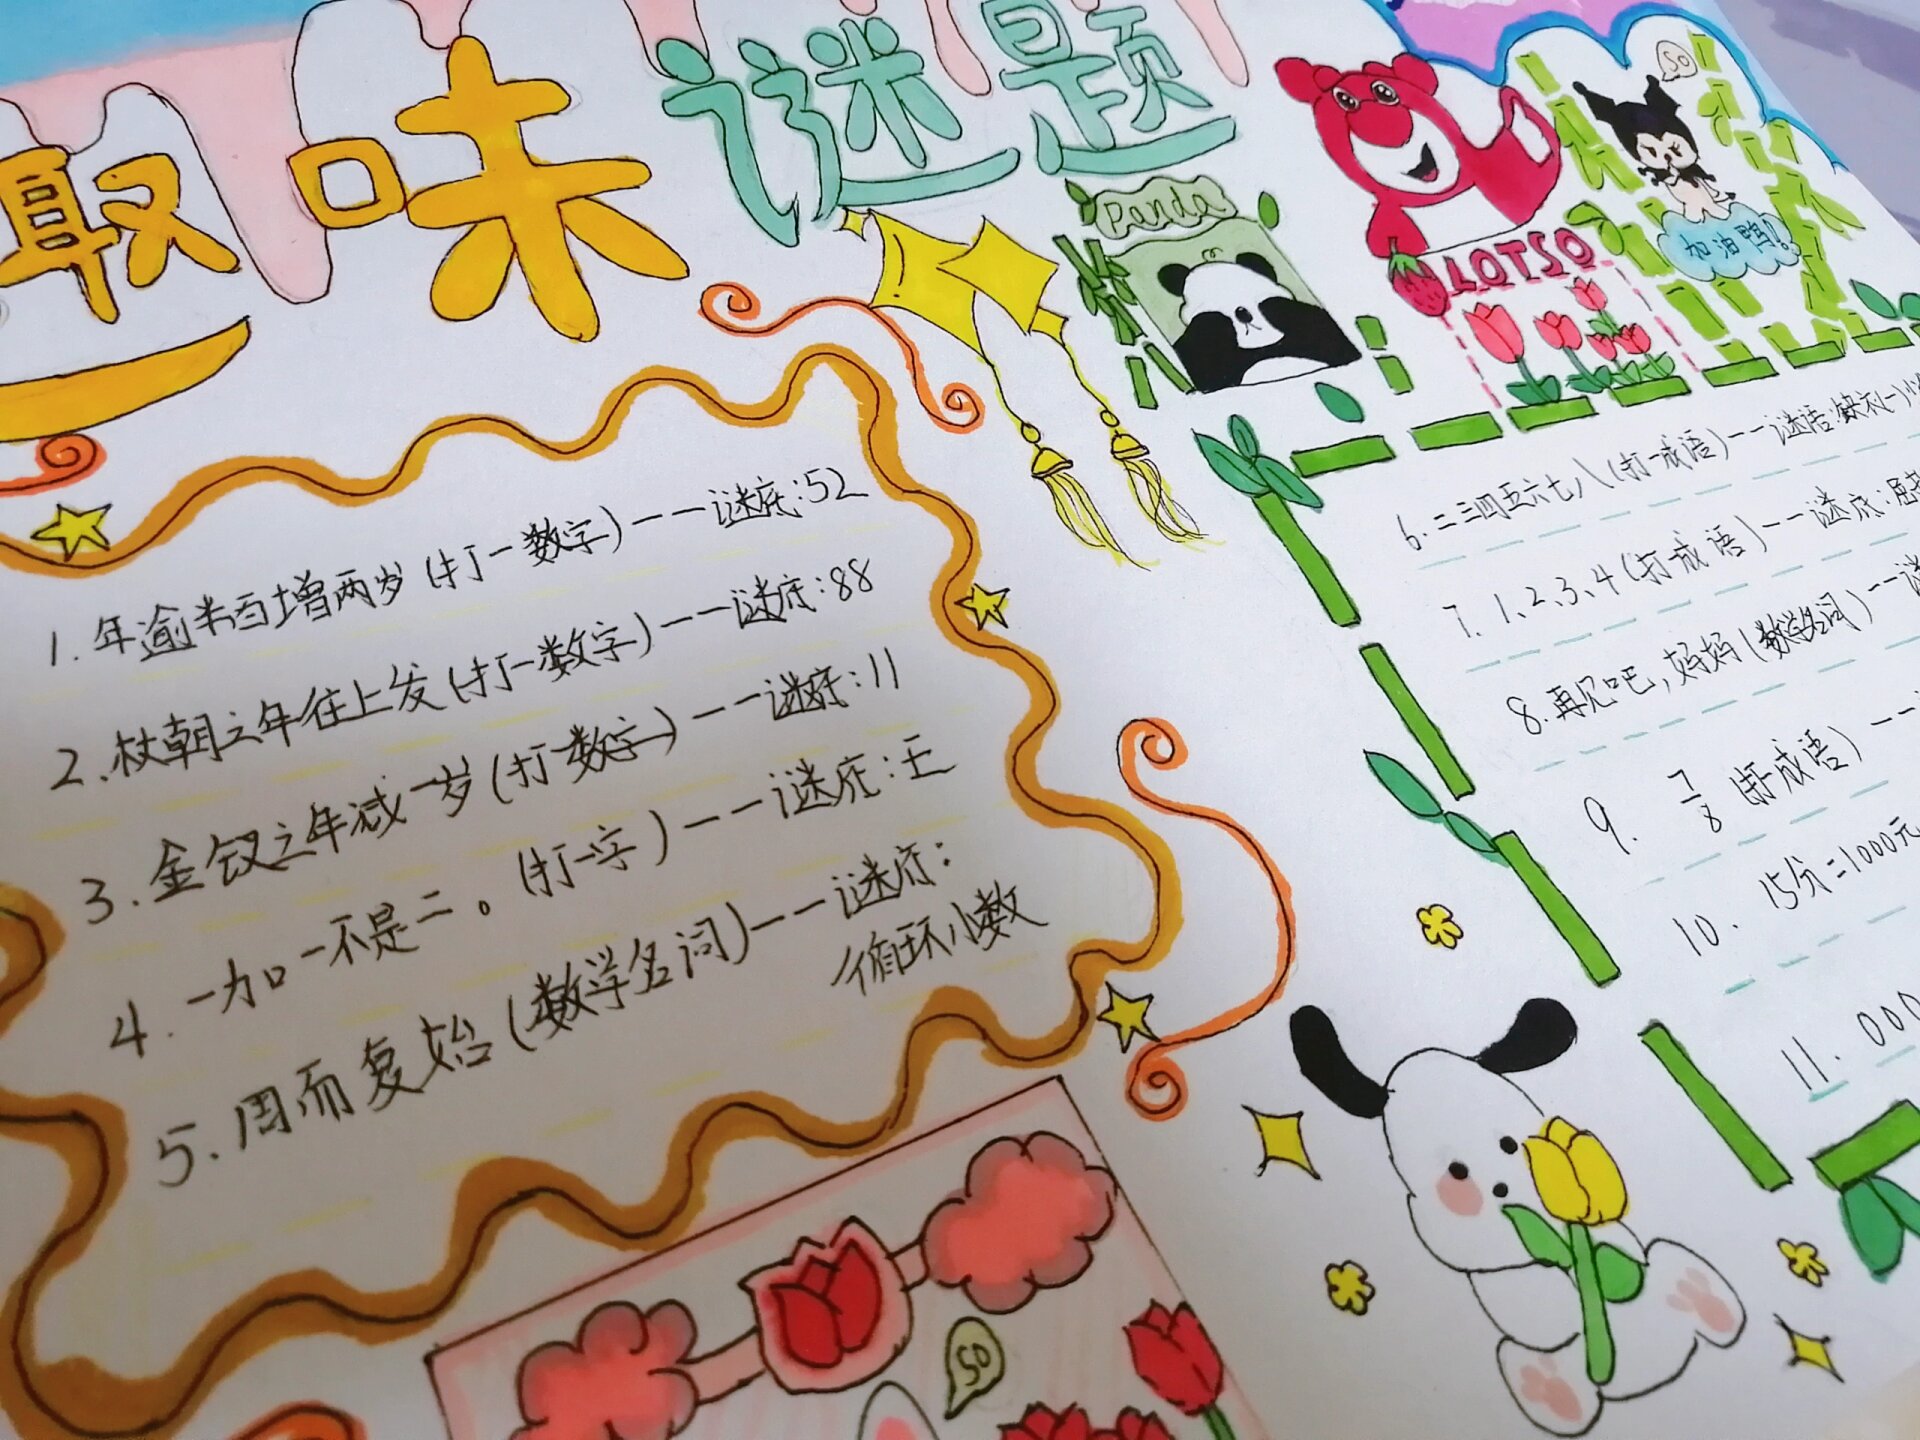 趣味谜题
Panda
LOTSO
SO
加油鸭!
1.年逾半百增两岁(打一数字)——谜底:52
2.杖朝之年往上发(打一数字)——谜底:88
3.金钗之年减一岁(打一数字)——谜底:11
4.一加一不是二。(打一字)——谜底:王
5.周而复始(数学名词)——谜底:
循环小数
6.二三四五六七八(打一成语)——谜语:缺衣(一)少
7.1、2、3、4(打成语)——谜底:
8.再见吧,妈妈(数学名词)——谜
9. 7/8 (打成语)——
10. 15分=1000元
11. 000
SO